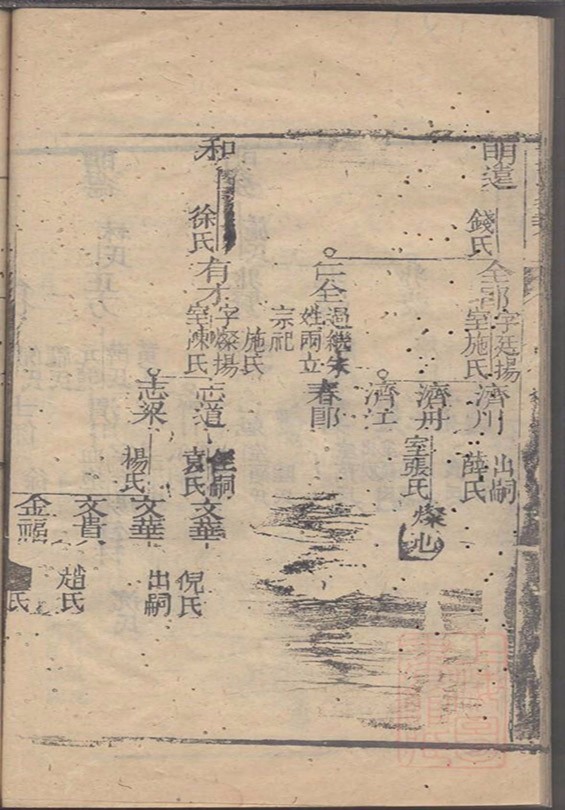 明遠
錢氏
全郎
字廷揚
室施氏
濟川
出嗣
薛氏
濟舟
室張氏
燦
濟江
仁全
過繼朱
姓兩立
宗祀
施氏
春郎
和
徐氏
有才
字燦揚
室陳氏
志道
袁氏
文華
倪氏
志梁
楊氏
文華
出嗣
文貴
趙氏
金福
氏